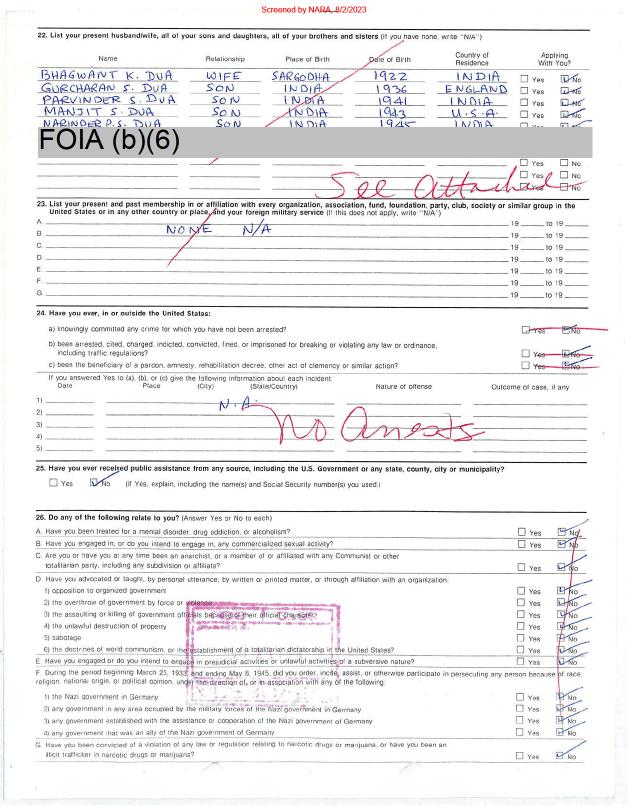 Screened by NARA, 8/2/2023
22. List your present husband/wife, all of your sons and daughters, all of your brothers and sisters (If you have none, write "N/A")
Name Relationship Place of Birth Date of Birth Country of Residence Applying With You?
BHAGWANT K. DUA WIFE SARGODHA 1922 INDIA Yes No
GURCHARAN S. DUA SON INDIA 1936 ENGLAND Yes No
PARVINDER S. DUA SON INDIA 1941 INDIA Yes No
MANJIT S. DUA SON INDIA 1943 U.S.A. Yes No
NARINDER P.S. DUA SON INDIA 1945 INDIA
FOIA (b)(6)
Yes No
Yes No
See Attached No
23. List your present and past membership in or affiliation with every organization, association, fund, foundation, party, club, society or similar group in the
United States or in any other country or place, and your foreign military service (If this does not apply, write "N/A")
A. 19 to 19
B. NONE N/A 19 to 19
C. 19 to 19
D. 19 to 19
E. 19 to 19
F. 19 to 19
G. 19 to 19
24. Have you ever, in or outside the United States:
a) knowingly committed any crime for which you have not been arrested? Yes No
b) been arrested, cited, charged, indicted, convicted, fined, or imprisoned for breaking or violating any law or ordinance,
including traffic regulations? Yes No
c) been the beneficiary of a pardon, amnesty, rehabilitation decree, other act of clemency or similar action? Yes No
If you answered Yes to (a), (b), or (c) give the following information about each incident
Date Place (City) (State/Country) Nature of offense Outcome of case, if any
1) N.A.
2)
3) No Arrests
4)
5)
25. Have you ever received public assistance from any source, including the U.S. Government or any state, county, city or municipality?
Yes No (If Yes, explain, including the name(s) and Social Security number(s) you used.)
26. Do any of the following relate to you? (Answer Yes or No to each)
A. Have you been treated for a mental disorder, drug addiction, or alcoholism? Yes No
B. Have you engaged in, or do you intend to engage in, any commercialized sexual activity? Yes No
C. Are you or have you at any time been an anarchist, or a member of or affiliated with any Communist or other
totalitarian party, including any subdivision or affiliate? Yes No
D. Have you advocated or taught, by personal utterance, by written or printed matter, or through affiliation with an organization:
1) opposition to organized government Yes No
2) the overthrow of government by force or violence Yes No
3) the assaulting or killing of government officials because of their official character? Yes No
4) the unlawful destruction of property Yes No
5) sabotage Yes No
6) the doctrines of world communism, or the establishment of a totalitarian dictatorship in the United States? Yes No
E. Have you engaged or do you intend to engage in prejudicial activities or unlawful activities of a subversive nature? Yes No
F. During the period beginning March 23, 1933, and ending May 8, 1945, did you order, incite, assist, or otherwise participate in persecuting any person because of race,
religion, national origin, or political opinion, under the direction of, or in association with any of the following:
1) the Nazi government in Germany Yes No
2) any government in any area occupied by the military forces of the Nazi government in Germany Yes No
3) any government established with the assistance or cooperation of the Nazi government of Germany Yes No
4) any government that was an ally of the Nazi government of Germany Yes No
G. Have you been convicted of a violation of any law or regulation relating to narcotic drugs or marijuana, or have you been an
illicit trafficker in narcotic drugs or marijuana? Yes No